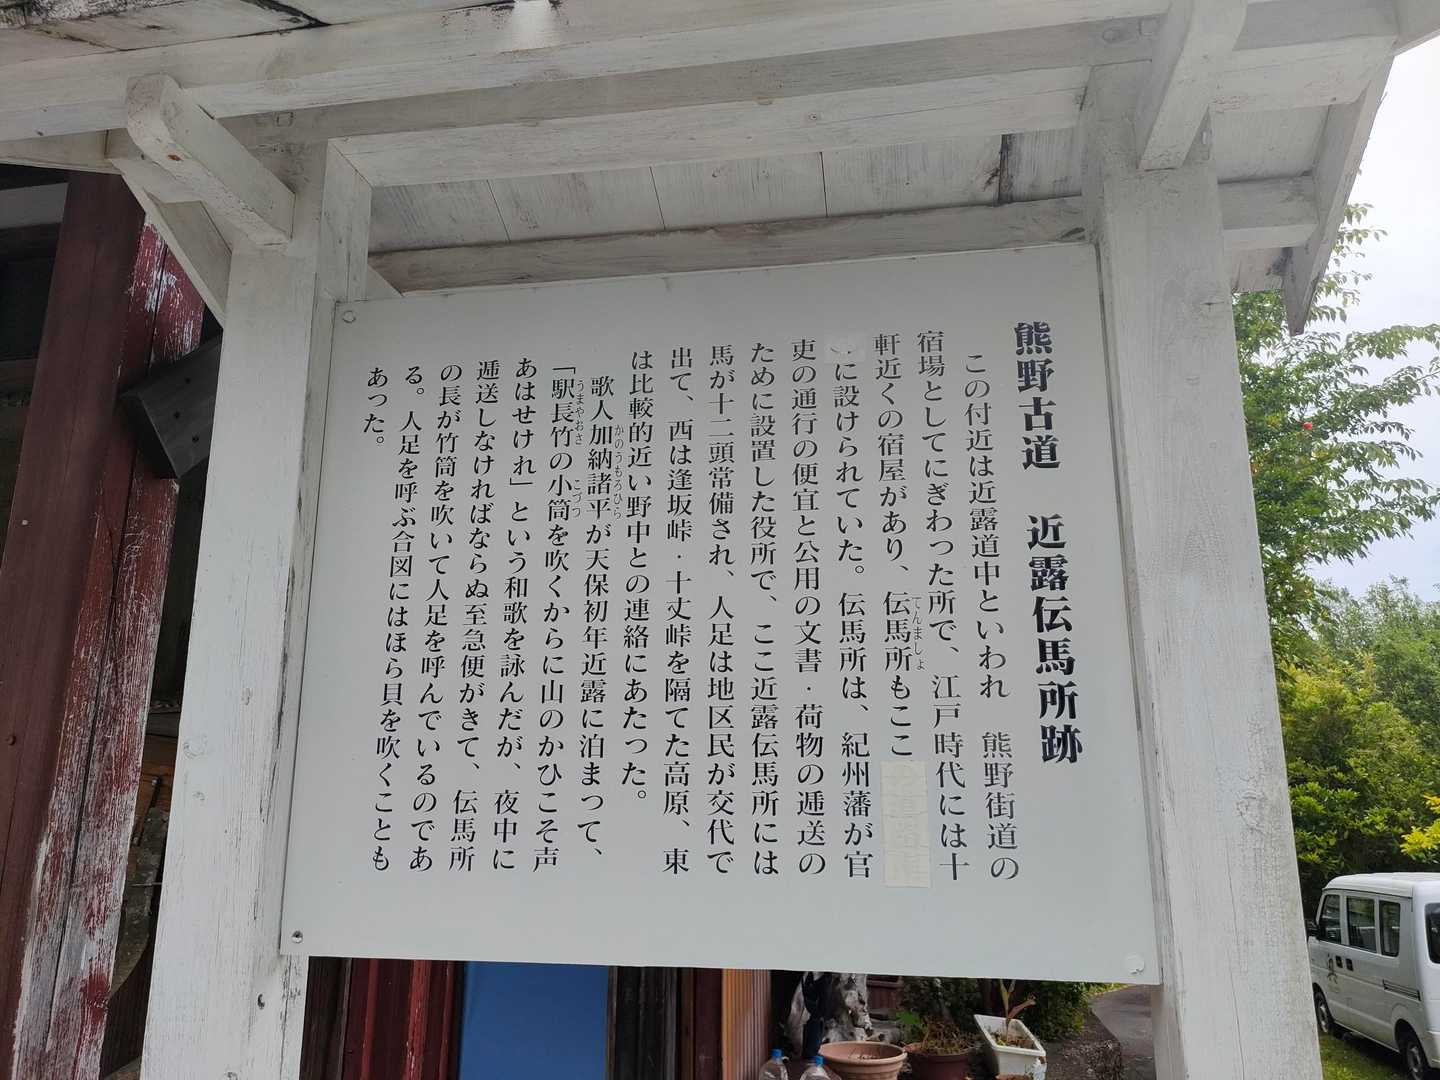 熊野古道　近露伝馬所跡
この付近は近露道中といわれ　熊野街道の
宿場としてにぎわった所で、江戸時代には十
軒近くの宿屋があり、伝馬所もここ
てんましょ
に設けられていた。伝馬所は、紀州藩が官
吏の通行の便宜と公用の文書・荷物の逓送の
ために設置した役所で、ここ近露伝馬所には
馬が十二頭常備され、人足は地区民が交代で
出て、西は逢坂峠・十丈峠を隔てた高原、東
は比較的近い野中との連絡にあたった。
歌人加納諸平が天保初年近露に泊まって、
かのうもろひら
「駅長竹の小筒を吹くからに山のかひこそ声
うまやおさ　こづつ
あはせけれ」という和歌を詠んだが、夜中に
逓送しなければならぬ至急便がきて、伝馬所
の長が竹筒を吹いて人足を呼んでいるのであ
る。人足を呼ぶ合図にはほら貝を吹くことも
あった。